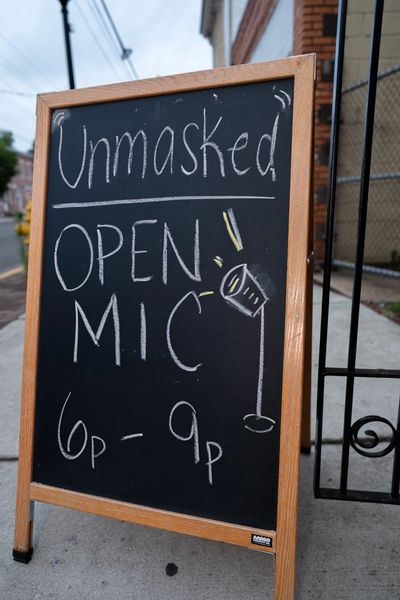 Unmasked
OPEN
MIC
6p - 9p